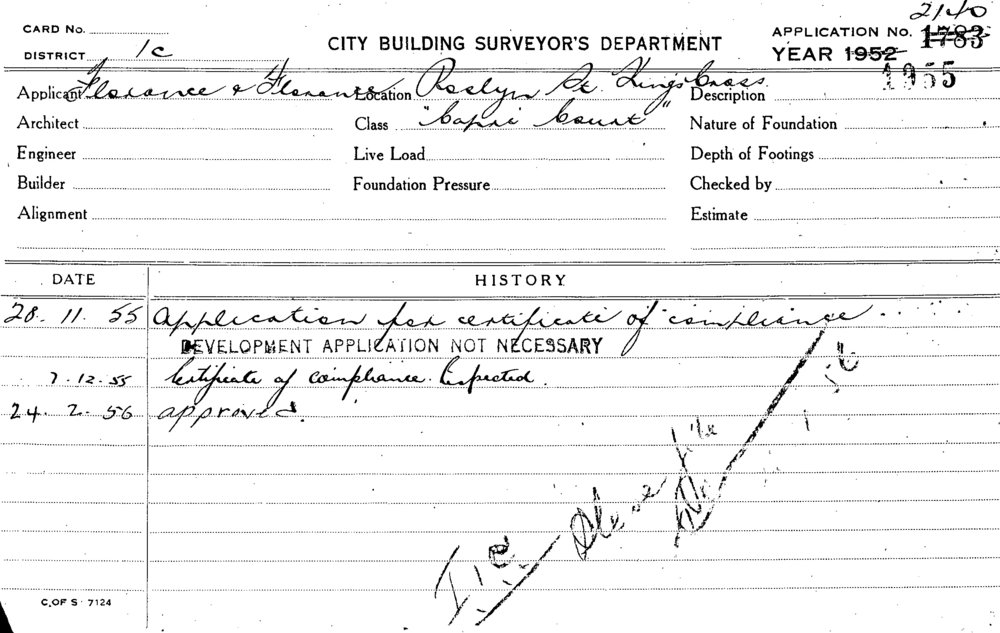 2140
CARD No.
DISTRICT 1c
CITY BUILDING SURVEYOR'S DEPARTMENT
APPLICATION No. 1783
YEAR 1952
1955
Applicant Florance & Florance Location Roslyn St. Kings Cross Description
Architect Class "Capri Court" Nature of Foundation
Engineer Live Load Depth of Footings
Builder Foundation Pressure Checked by
Alignment Estimate
DATE HISTORY
28. 11. 55 Application for certificate of compliance
DEVELOPMENT APPLICATION NOT NECESSARY
7.12.55 Certificate of compliance. Inspected.
24. 2. 56 approved.
Please file
C. OF S 7124